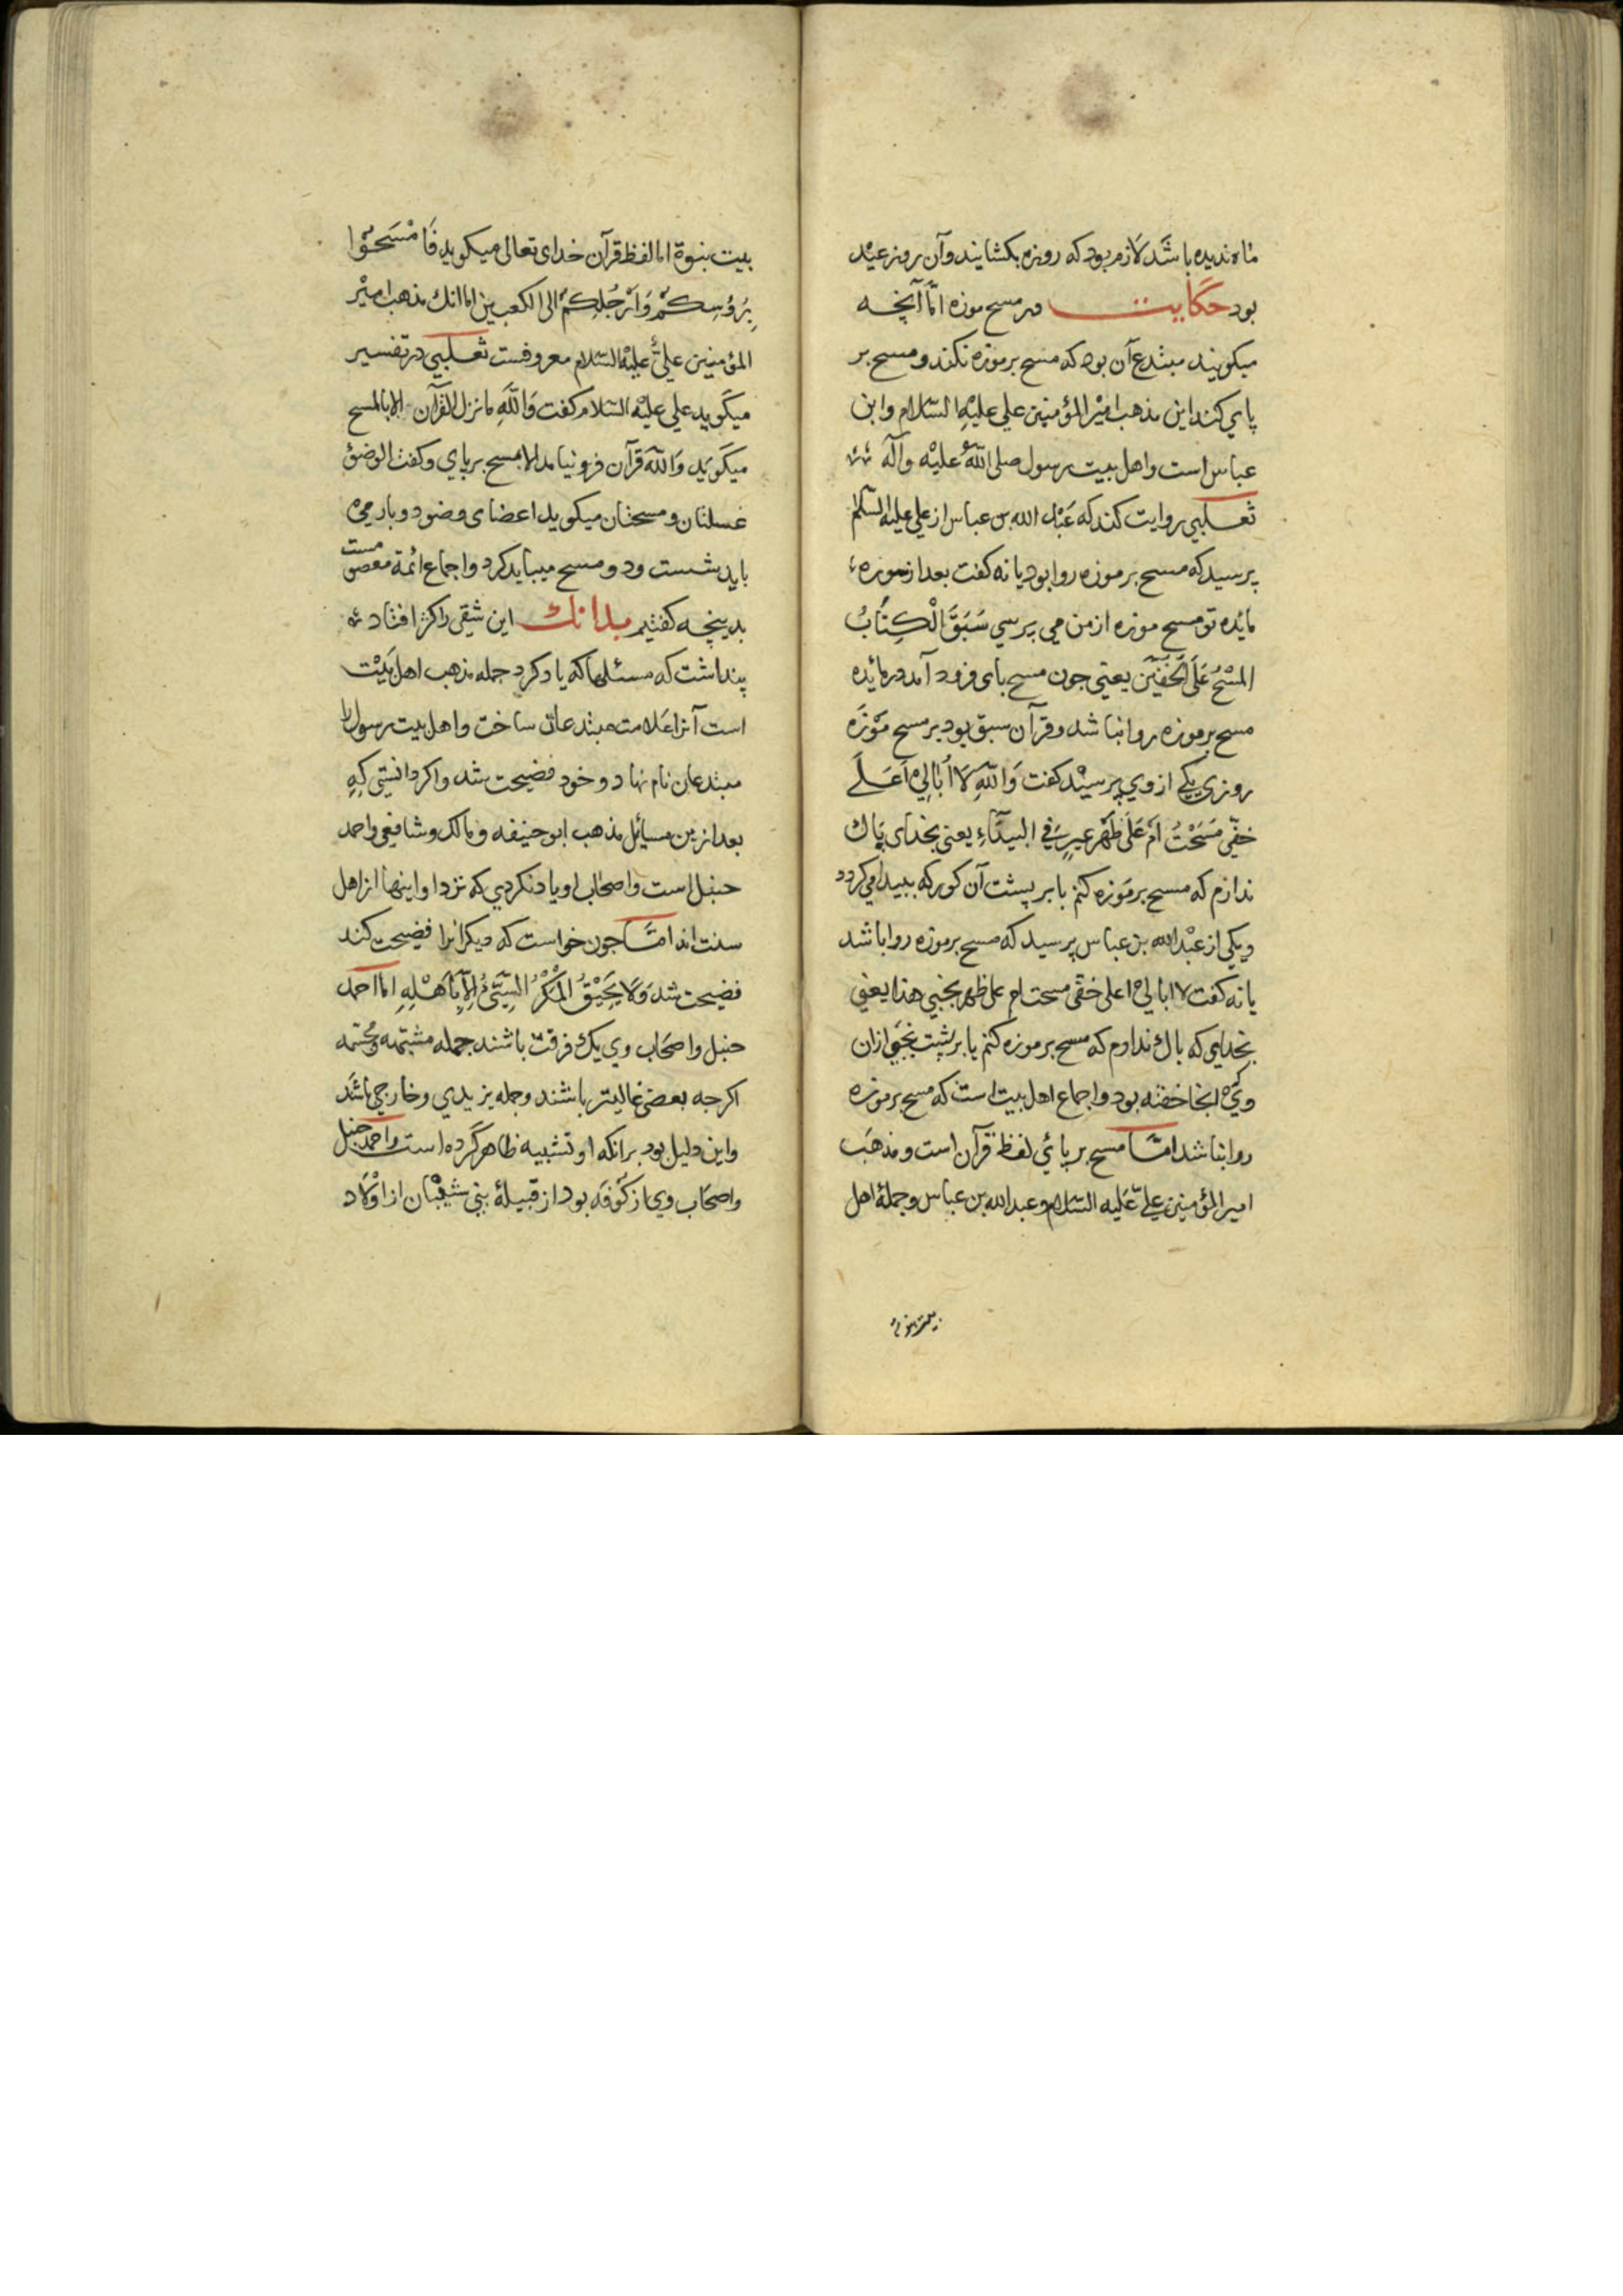 ماه ندیده باشد لازم بود که روزه بکشایند وآن روز عید
بود حکایت در مسح موزه امّا آنچه
میکویند مبتدع آن بود که مسح بر موزه نکند و مسح بر
پای کند این مذهب امیر المؤمنین علی علیه السّلام وابن
عباس است واهل بیت رسول صلی الله علیه وآله
ثعلبی روایت کند که عبد الله بن عباس از علی علیه السّلام
پرسید که مسح بر موزه روا بود یا نه کفت بعد از سوره
مائده تو مسح موزه از من می پرسی سَبَقَ الْکِتَابُ
المَسْحُ عَلَی الخُفَّیْنَ یعنی جون مسح بای فرود آمد در مائده
مسح بر موزه روا نباشد و قرآن سبق بود بر مسح موزه
روزی یکی از وی پرسید کفت وَاللّهِ لَا اُبَالِی اَعَلَی
خفّی مَسَحْتُ اَمْ عَلَی ظَهْرِ عیرٍ فِی البیدَاءِ یعنی بخدای پاک
ندارم که مسح بر موزه کنم یا بر پشت آن کور که ببیدا می کردد
ویکی از عبد الله بن عباس پرسید که مسح بر موزه روا باشد
یا نه کفت لا ابالی اعلی خفی مسحت ام علی ظهر بختی هذا یعنی
بخدای که باک ندارم که مسح بر موزه کنم یا بر پشت بختی ازان
وی که انجا خفته بود واجماع اهل بیت است که مسح بر موزه
روا نباشد امّا مسح بر پائی لفظ قرآن است و مذهب
امیر المؤمنین علی علیه السّلام و عبد الله بن عباس وجملهٔ اهل
بیت نبوة
بیت نبوة اما لفظ قرآن خدای تعالی میکوید فَامْسَحُوا
بِرُؤُسِکُمْ وَاَرْجُلِکُمْ الی الکعبین اما انک مذهب امیر
المؤمنین علی علیه السّلام معروفست ثعلبی در تفسیر
میکوید علی علیه السّلام کفت وَاللّهِ ما نزل القرآن الا بالمسح
میکوید وَاللّه قرآن فرو نیامد الا بمسح بر پای وکفت الوضؤ
غسلتان و مسحتان میکوید اعضای وضو دو بار می
باید شست ودو مسح میباید کرد واجماع ائمة معصومست
بدینچه کفتیم بدانک این شقی را کژ افتاد
پنداشت که مسئلها که یاد کرد جمله مذهب اهل بیت
است آنرا علامت مبتدعان ساخت واهل بیت رسول را
مبتدعان نام نهاد و خود فضیحت شد واکر دانستی که
بعد ازین مسایل مذهب ابو حنیفه و مالک و شافعی واحمد
حنبل است واصحاب او یاد نکردی که نزد او اینها از اهل
سنت اند امّا جون خواست که دیکرانرا فضیحت کند
فضیحت شد وَلَا یَحِیْقُ الْمَکْرُ السَّیِّئُ اِلَّا بِاَهْلِهِ اما احمد
حنبل واصحاب وی یک فرقت باشند جمله مشبّهه و مجسّمه
اکرجه بعضی غالیتر باشند وجمله یزیدی وخارجی باشند
واین دلیل بود برانکه او تشبیه ظاهر کرده است واحمد حنبل
واصحاب وی از کوفه بود از قبیلهٔ بنی شیبان از اولاد